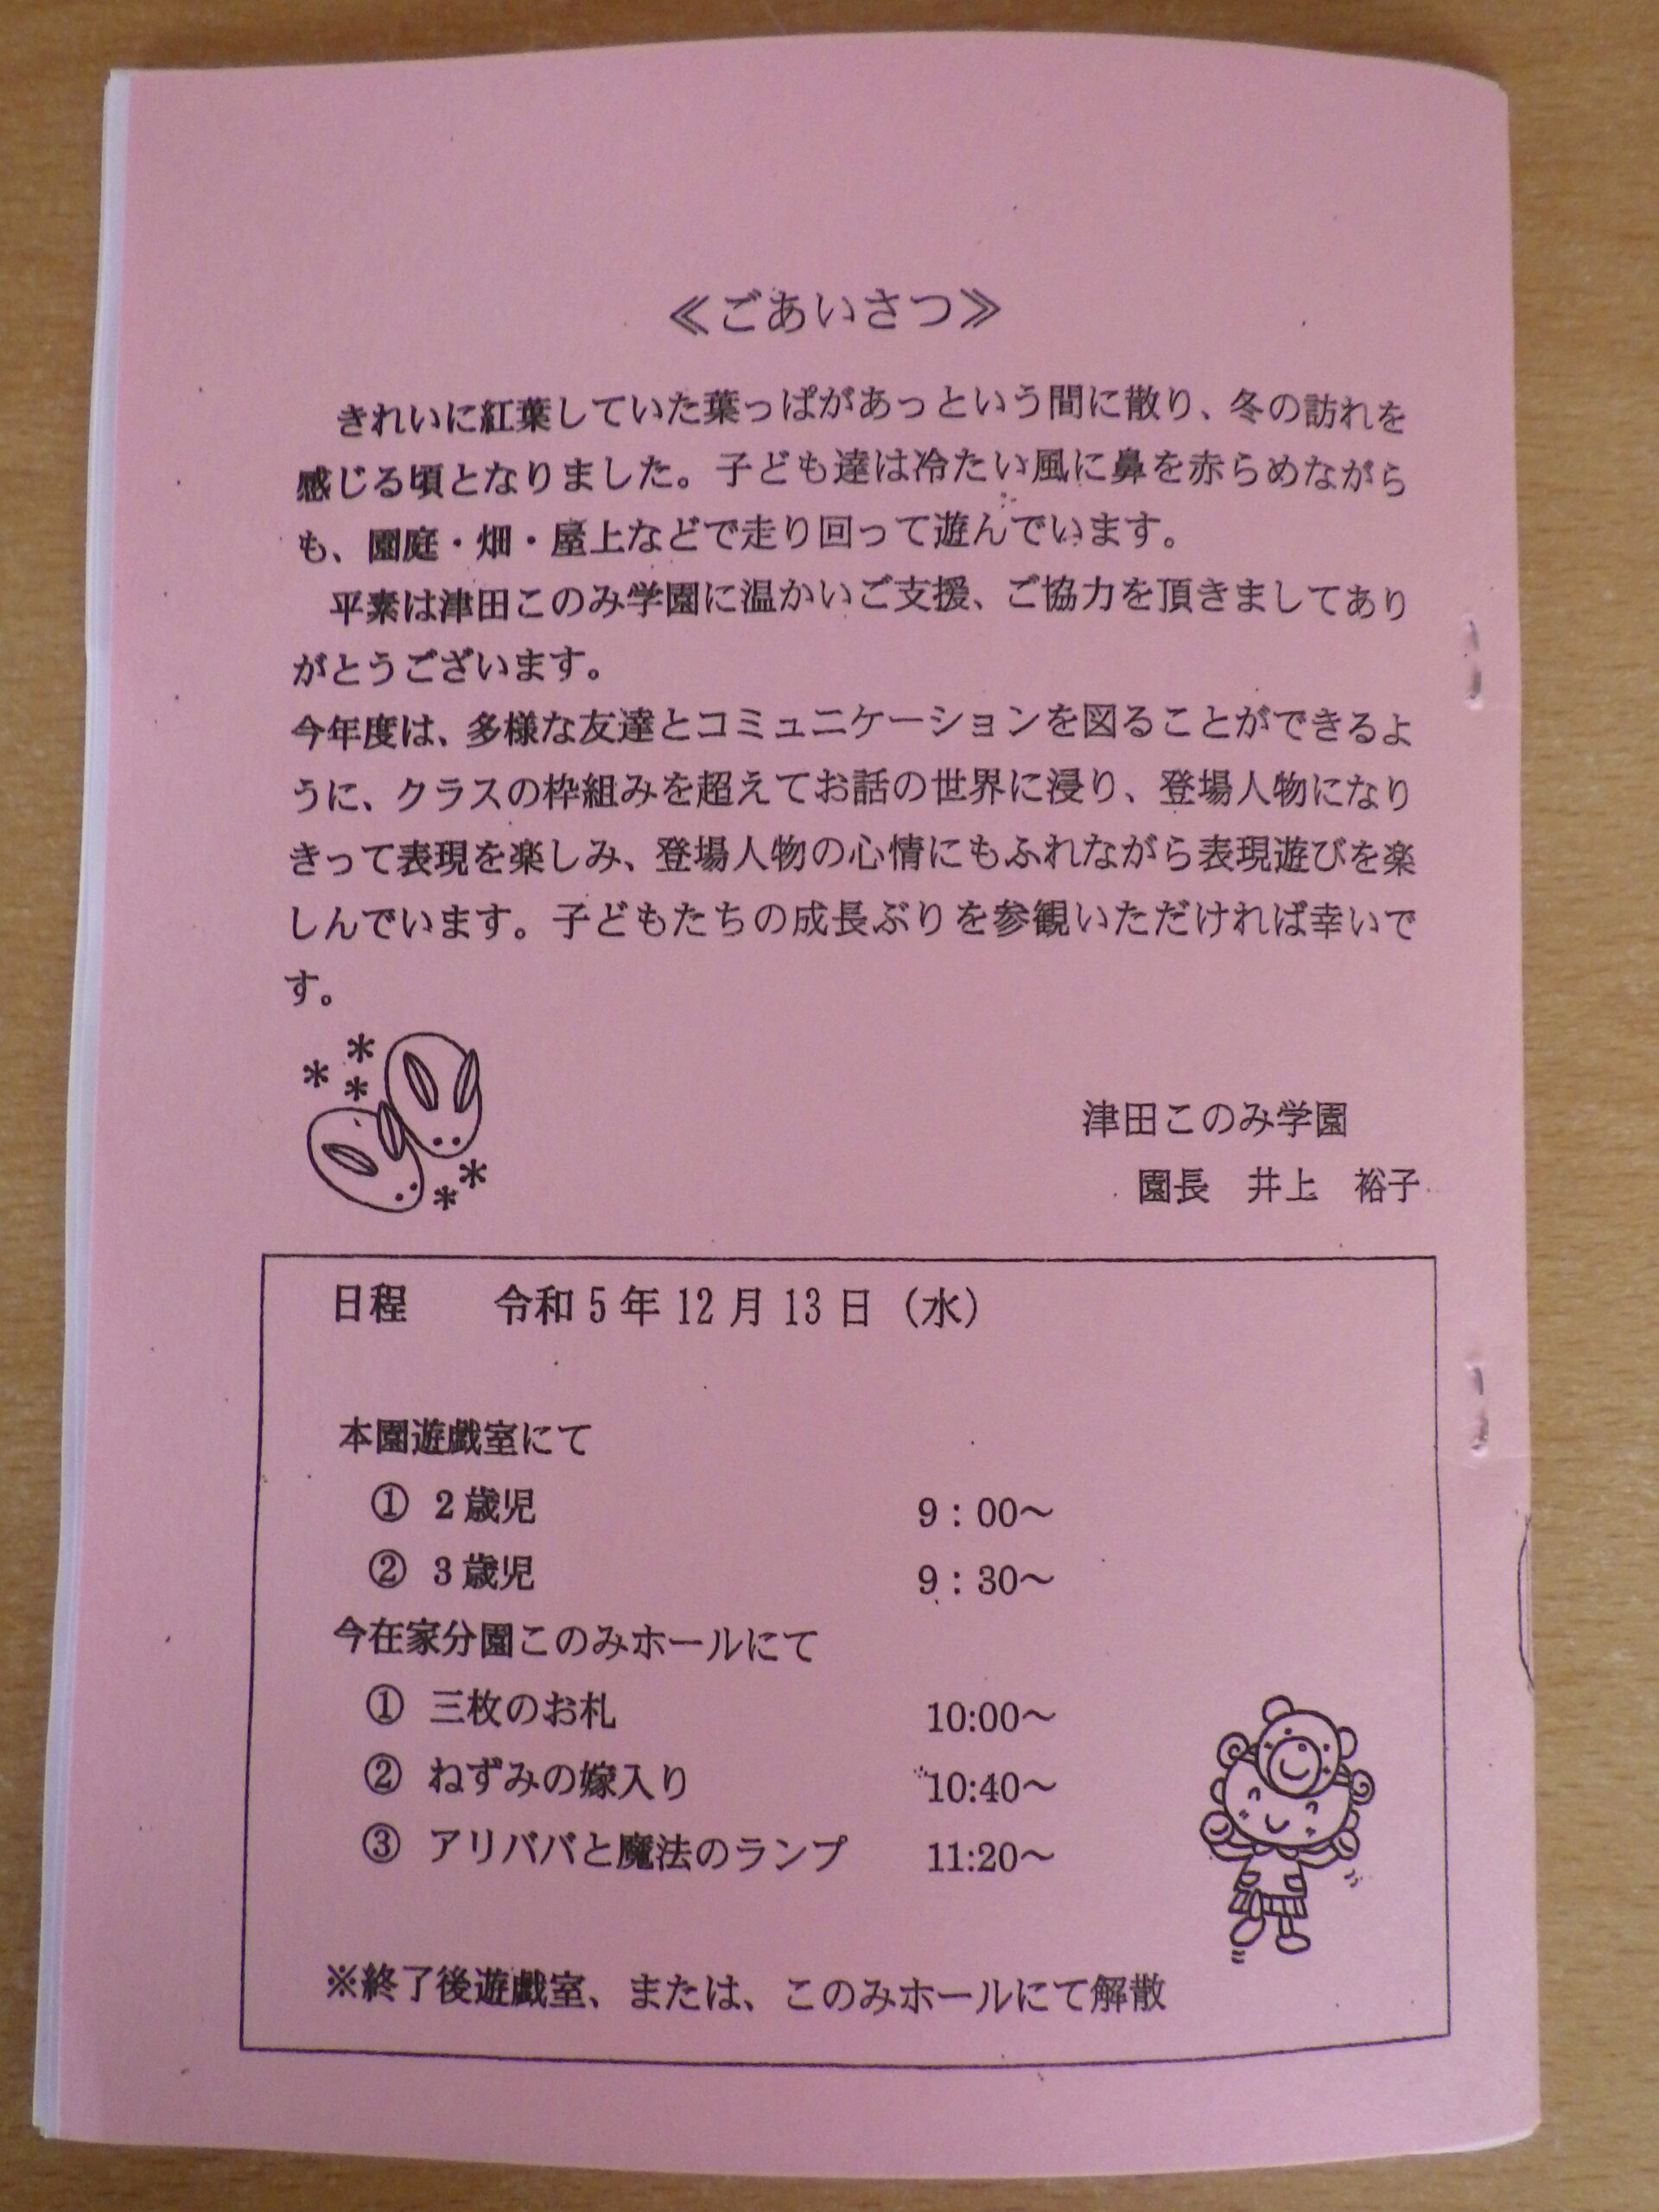 ≪ごあいさつ≫
きれいに紅葉していた葉っぱがあっという間に散り、冬の訪れを
感じる頃となりました。子ども達は冷たい風に鼻を赤らめながら
も、園庭・畑・屋上などで走り回って遊んでいます。
平素は津田このみ学園に温かいご支援、ご協力を頂きましてあり
がとうございます。
今年度は、多様な友達とコミュニケーションを図ることができるよ
うに、クラスの枠組みを超えてお話の世界に浸り、登場人物になり
きって表現を楽しみ、登場人物の心情にもふれながら表現遊びを楽
しんでいます。子どもたちの成長ぶりを参観いただければ幸いで
す。
津田このみ学園
園長 井上 裕子
日程 令和5年12月13日（水）
本園遊戯室にて
① 2歳児 9：00～
② 3歳児 9：30～
今在家分園このみホールにて
① 三枚のお札 10:00～
② ねずみの嫁入り 10:40～
③ アリババと魔法のランプ 11:20～
※終了後遊戯室、または、このみホールにて解散